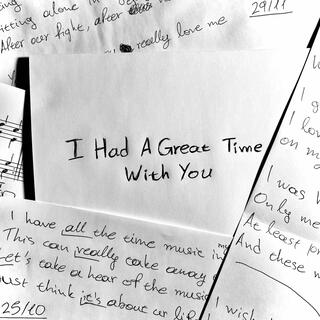 itting alone in
29/11
After our fight, after
really love me
I Had A Great Time
With You
I have all the time music in my
This can really take away
Let's take a hear of the music
ust think it's about ur lif
25/10
I g
I lov
on m
I was
Only me
At least pr
And these w
I wish